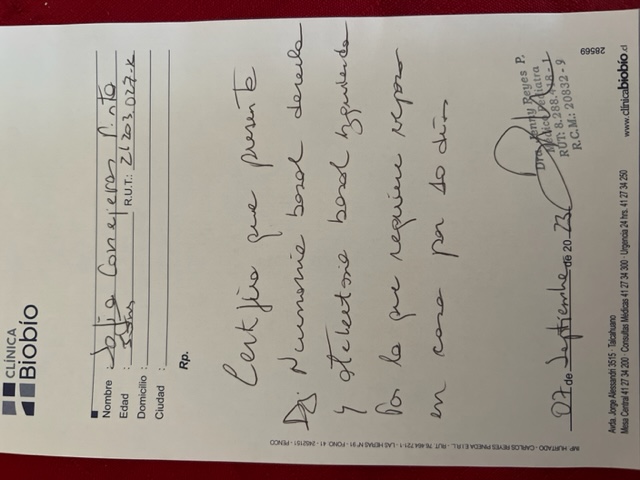 CLÍNICA
Biobío
Nombre : Sofia Conejeros Pinto
Edad : R.U.T.: 21203027-K
Domicilio :
Ciudad :
Rp.
Certifico que presenta
Dg: Neumonia basal derecha
y atelectasia basal izquierda
Por lo que requiere reposo
en casa por 10 dias
Dra. Jenny Reyes P.
Médico Pediatra
RUT: 8.288.418-1
R.C.M.: 20832-9
07 de Septiembre de 2023
Avda. Jorge Alessandri 3515 · Talcahuano
Mesa Central 41 27 34 200 · Consultas Médicas 41 27 34 300 · Urgencia 24 hrs. 41 27 34 250
www.clinicabiobio.cl
28569
IMP. HURTADO - CARLOS REYES PINEDA E.I.R.L. - RUT. 76.464.721-1 - LAS HERAS Nº 91 - FONO - 41 - 2452151 - PENCO